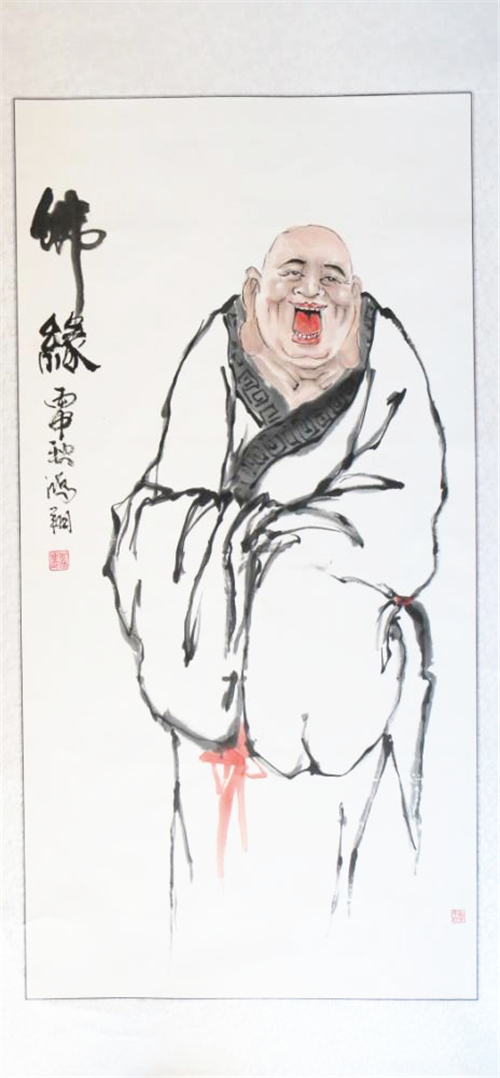 佛缘
丙申秋鸿翔